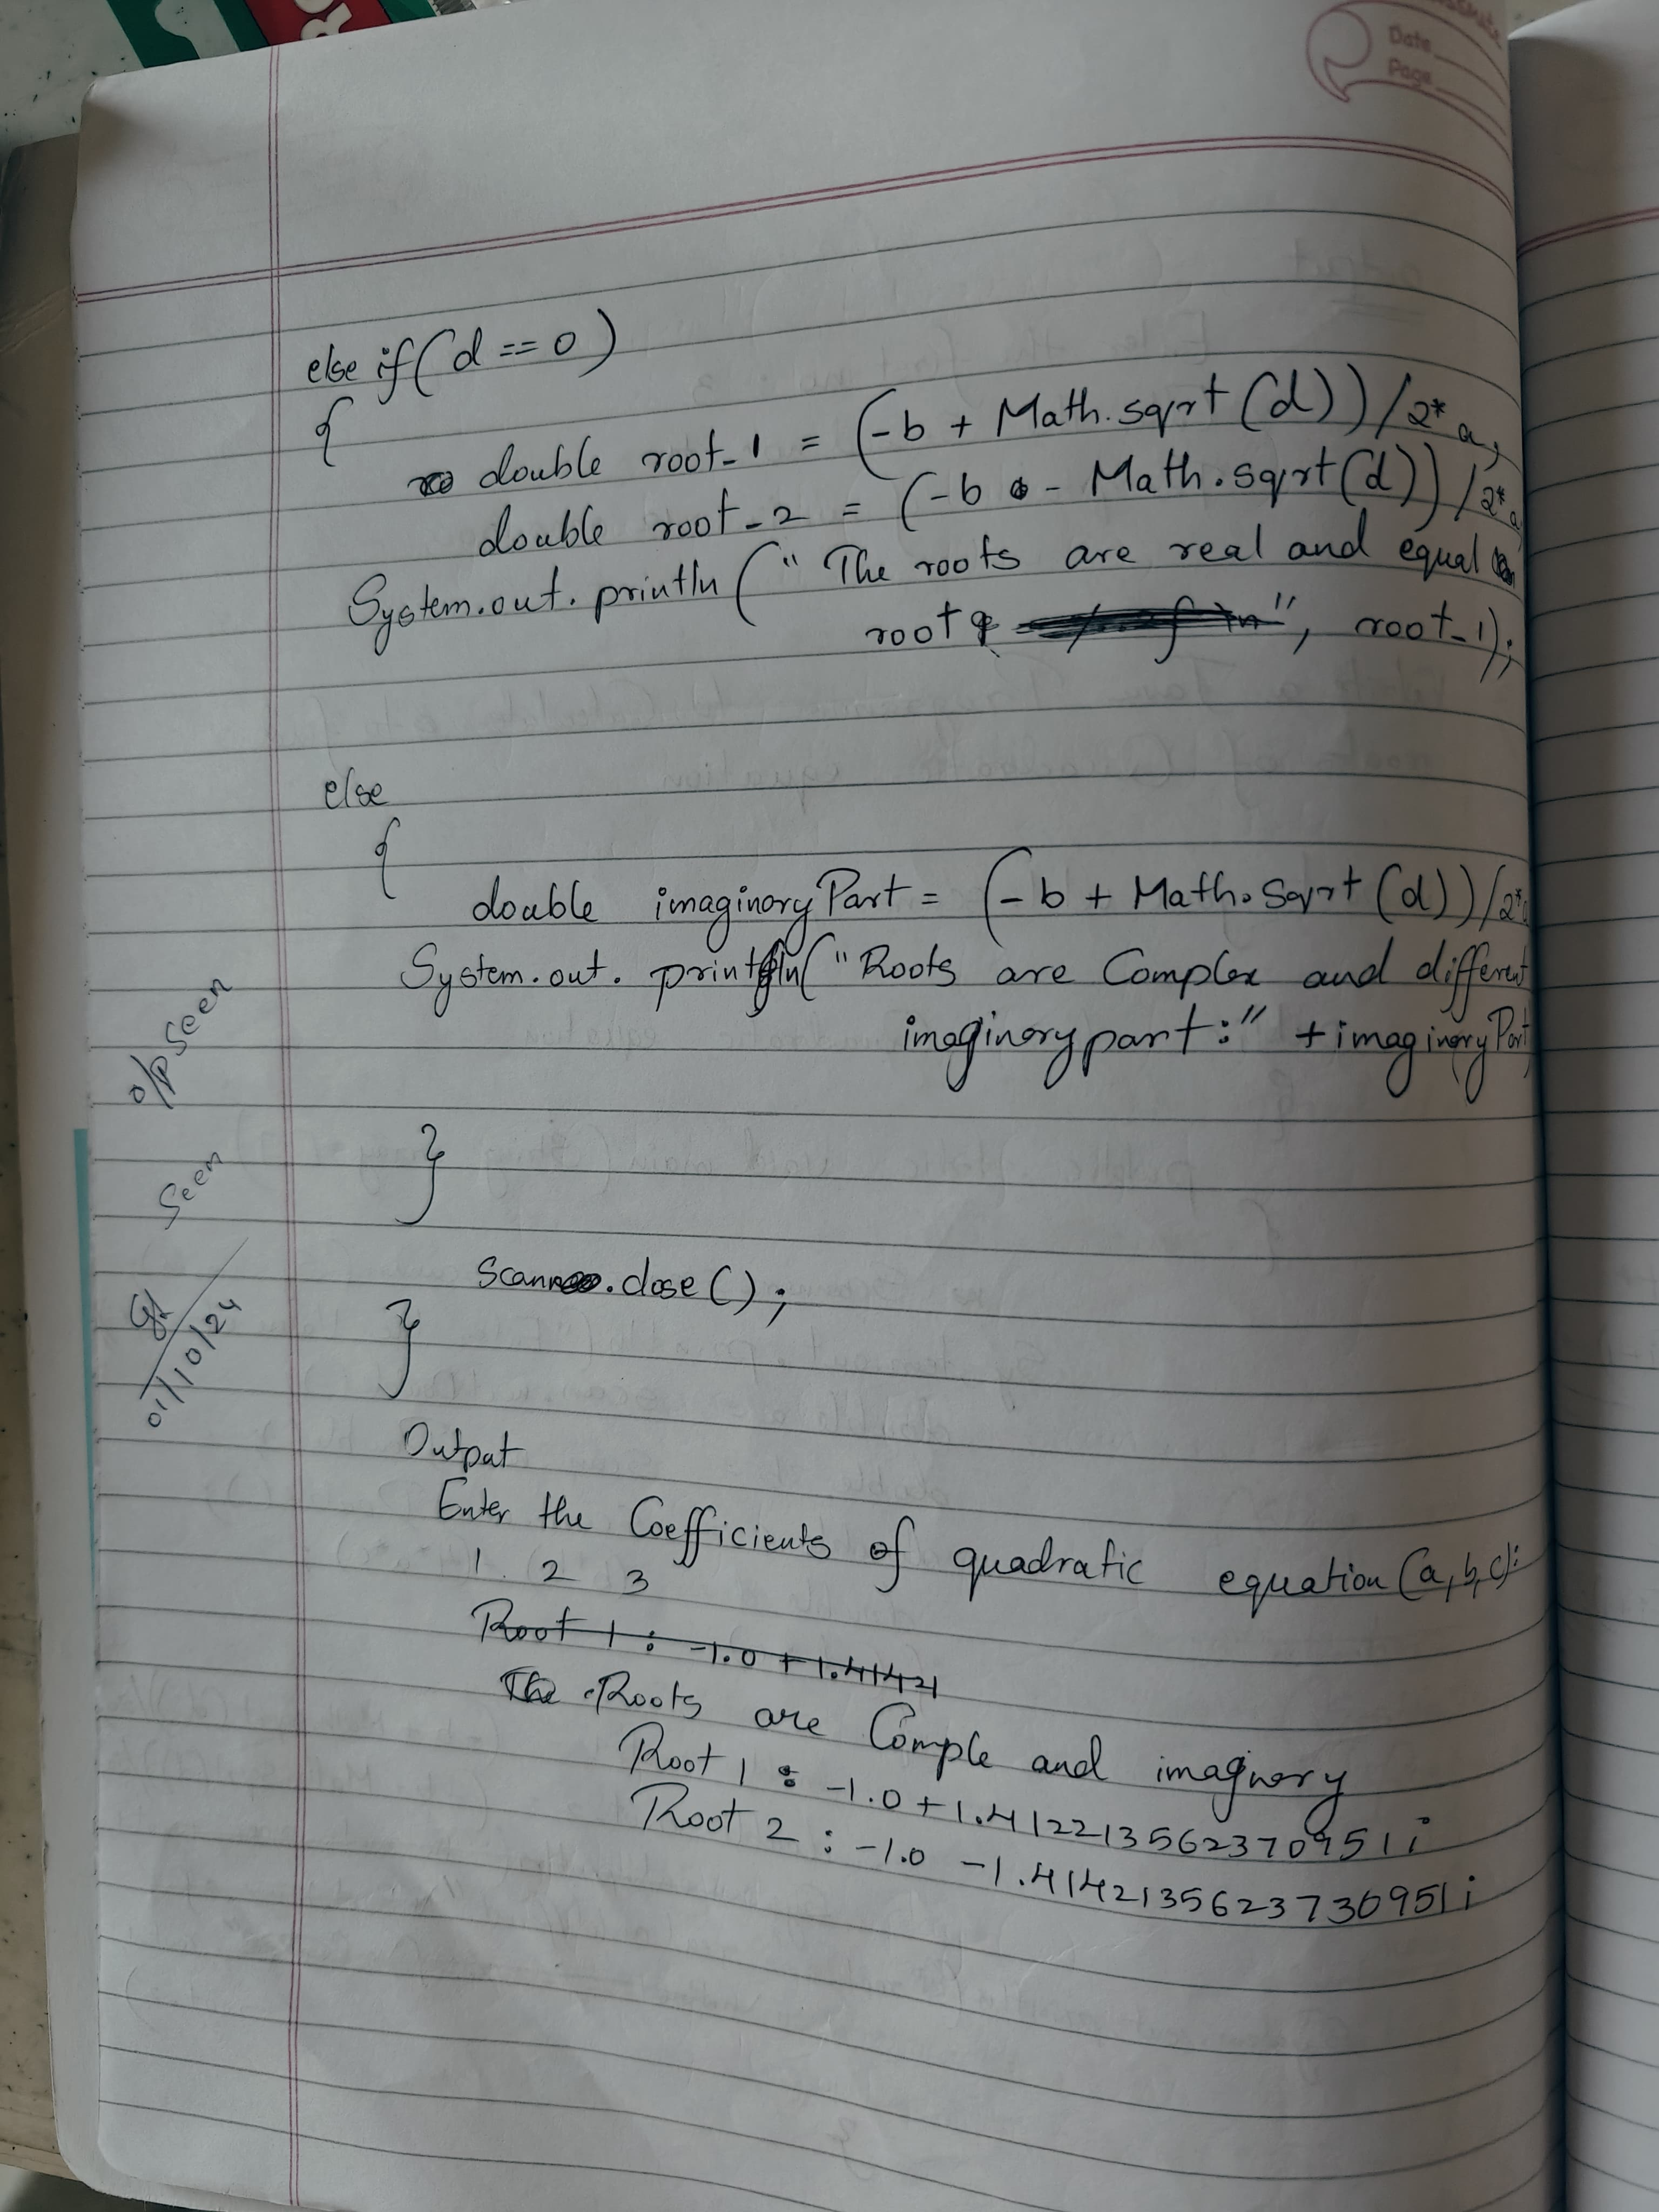 Date
Page
else if( d == 0 )
{
double root_1 = (-b + Math.sqrt(d))/2*a;
double root_2 = (-b - Math.sqrt(d))/2*a
System.out.println(" The roots are real and equal
root ", root_1);
else
{
double imaginoryPart = (-b + Math.Sqrt(d))/2*a
System.out.println("Roots are Complex and different
imaginory part:" + imaginoryPart
o/p Seen
}
Seen
Scan.close();
}
01/10/24
Output
Enter the Coefficients of quadratic equation (a, b, c):
1 2 3
Root 1 : -1.0 + 1.41421
The Roots are Comple and imaginory
Root 1 : -1.0 + 1.412213562370951i
Root 2 : -1.0 - 1.4142135623730951i